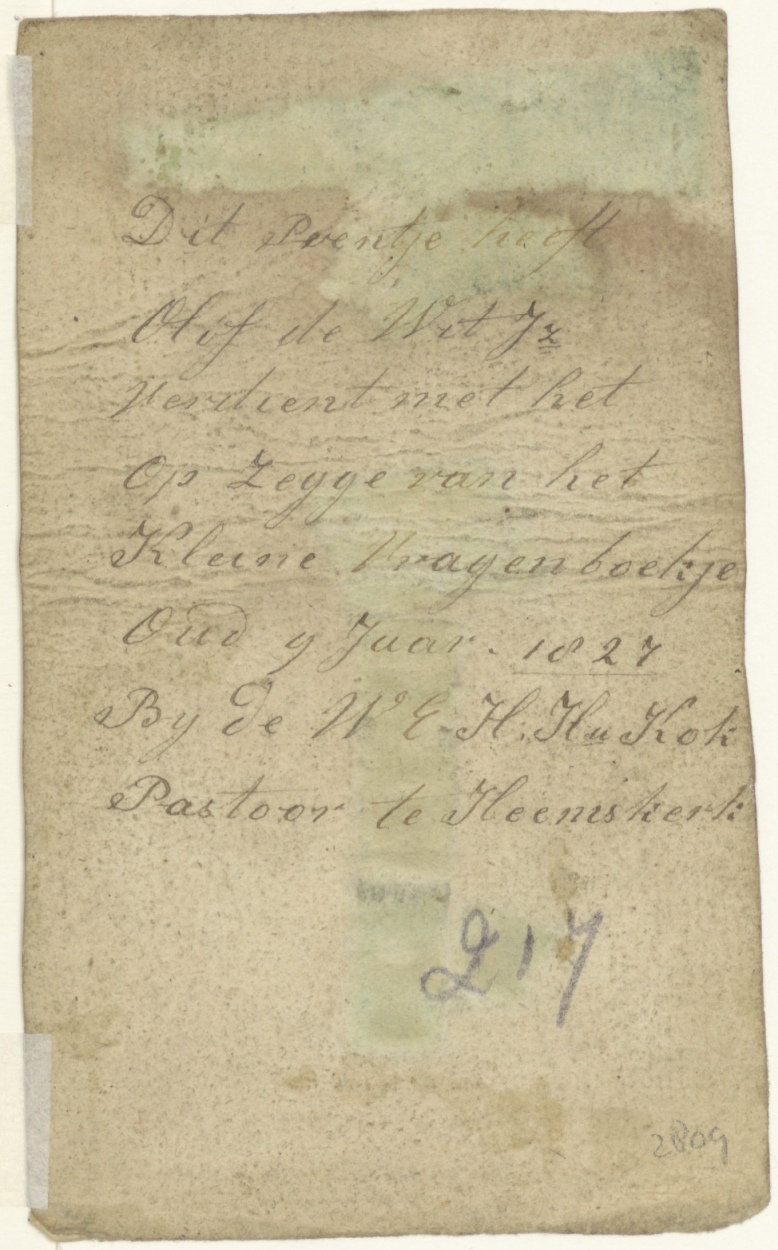 Dit Prentje heeft
Olof de Wit Jz
Verdient met het
Op Zegge van het
Kleine Vragenboekje
Oud 9 Jaar. 1827
By de W E H. Kok
Pastoor te Heemskerk
217
2809